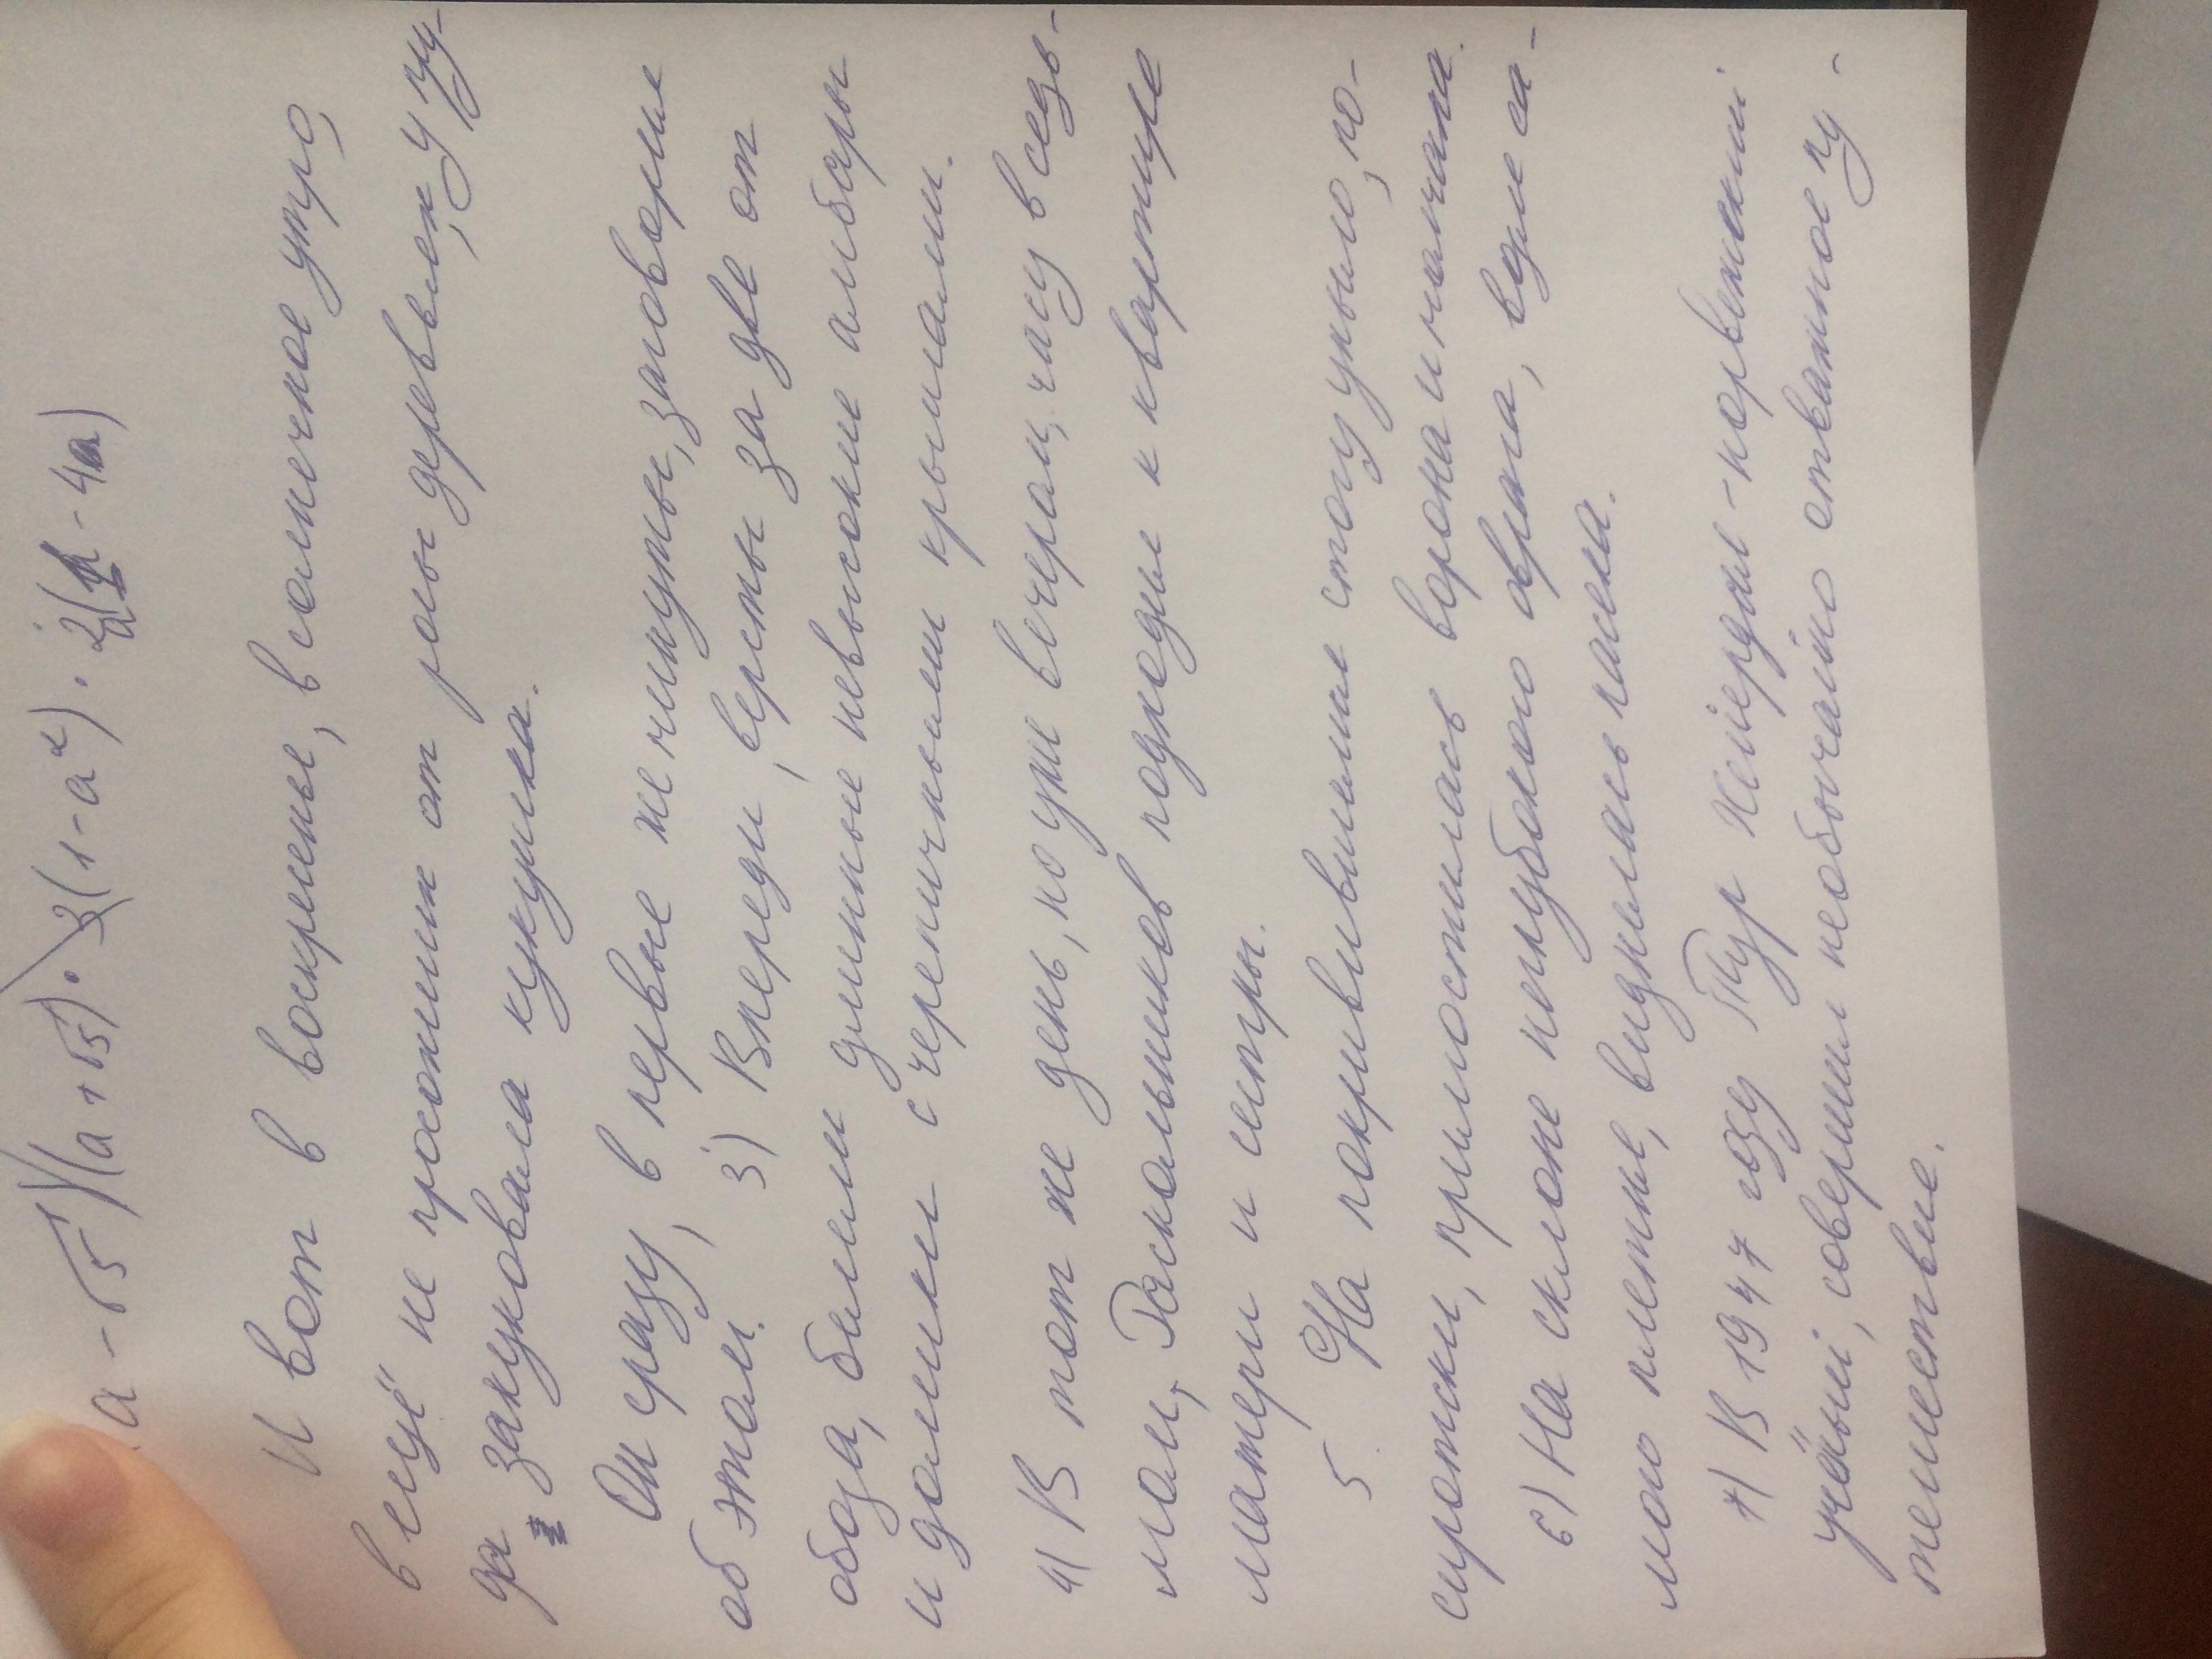 а - √5)(а + √5) · 3(1 - а²) · 2(1 - 4а)
И вот в воскресенье, в солнечное утро,
в ещё не просохших от росы деревенских пру-
дах закуковала кукушка.
Он сразу, в первые же минуты, заговорил
об этом. 3) Впереди, версты за две от
обоза, белели длинные невысокие амбары
и домики с черепичными крышами.
4) В тот же день, но уже вечером, часу в седь-
мом, Раскольников подходил к квартире
матери и сестры.
5 На покривившемся стогу уныло, по-
сиротски, примостилась ворона и молчала.
6) На склоне неглубокого оврага, возле са-
мого плетня, виднелась пасека.
7) В 1947 году Тур Хейердал - норвежский
учёный, совершил необычайно отважное пу-
тешествие.